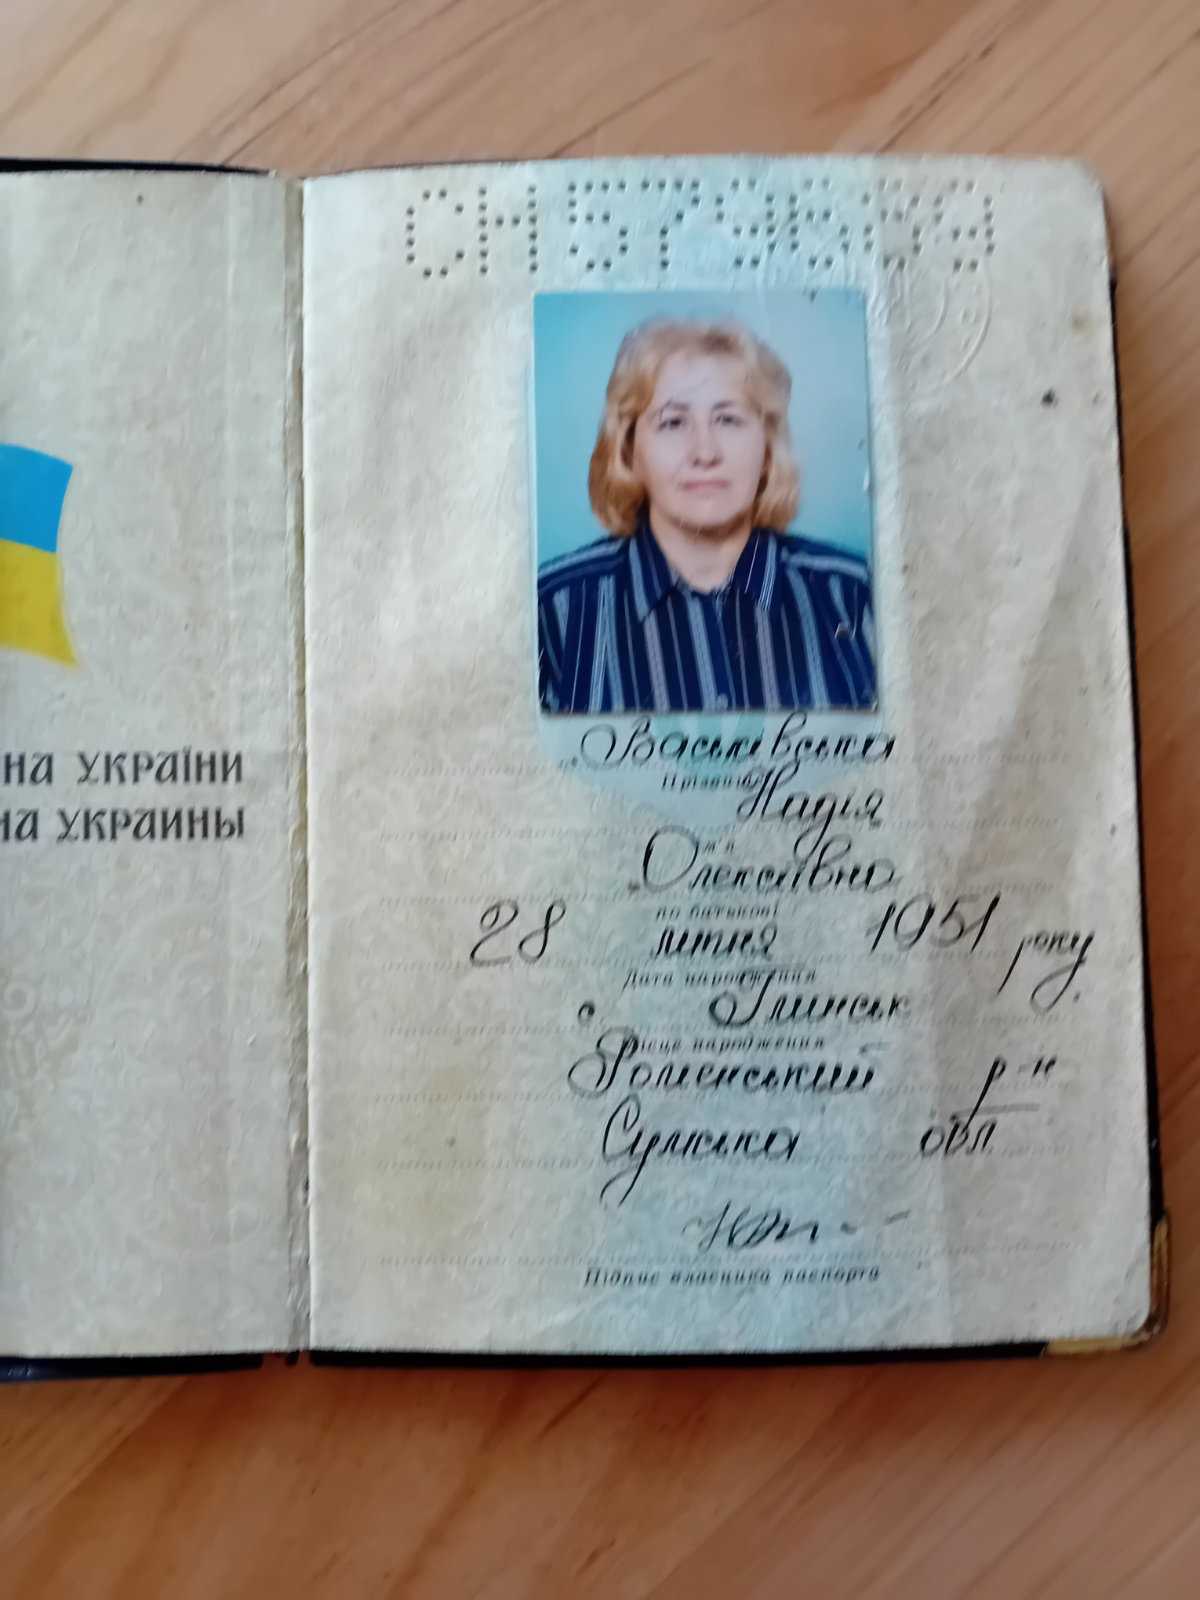 НА УКРАЇНИ
НА УКРАИНЫ
Васьківська
Прізвище
Надія
Ім'я
Олексіївна
по батькові
28 липня 1951 року
Дата народження
с. Глинськ
Місце народження
Роменський р-н
Сумська обл
Підпис власника паспорта